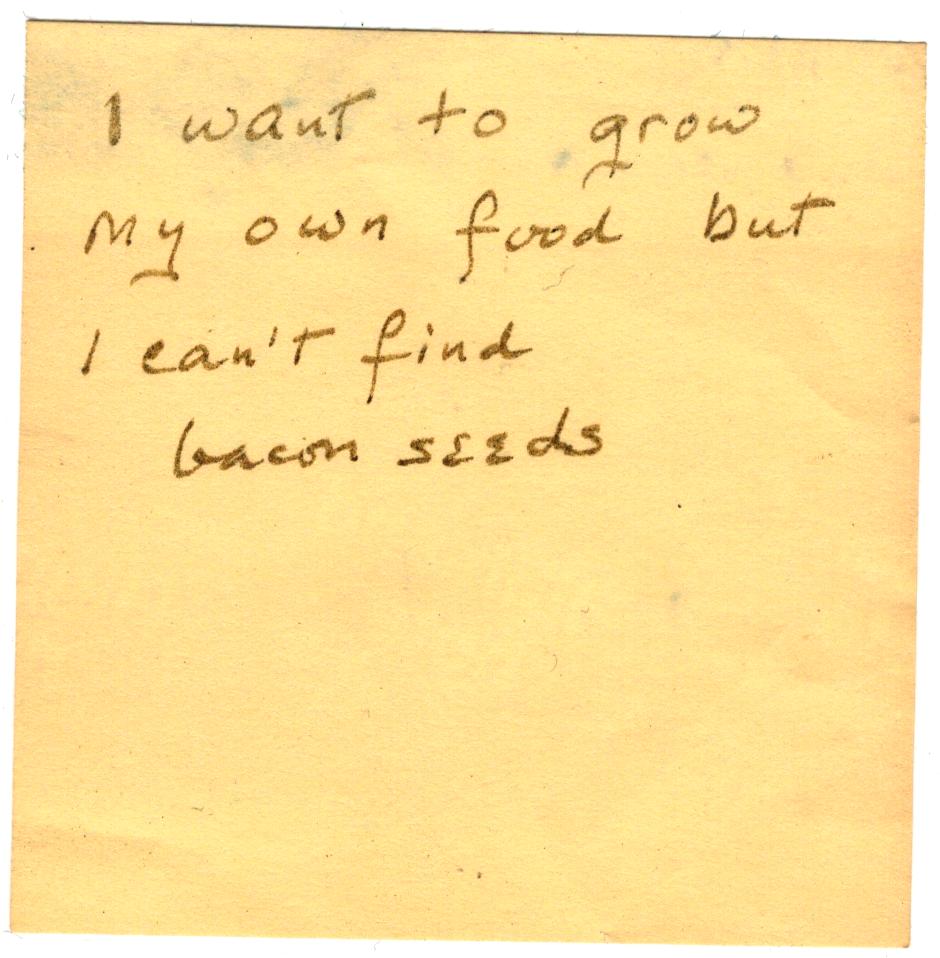 I want to grow
My own food but
I can't find
bacon seeds